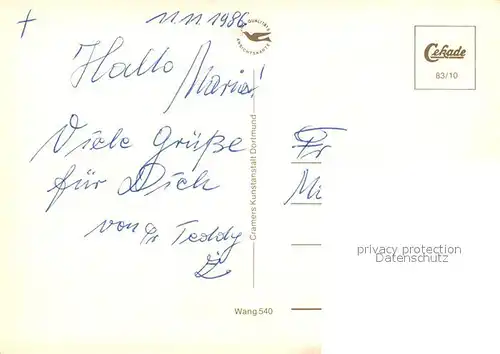 11.11.1986
QUALITÄTS
ANSICHTSKARTE
Cekade
83/10
Hallo
Maria!
Viele Grüße
für Dich
von Pr Teddy
Cramers Kunstanstalt Dortmund
Fr
Mi
privacy protection
Datenschutz
Wang 540